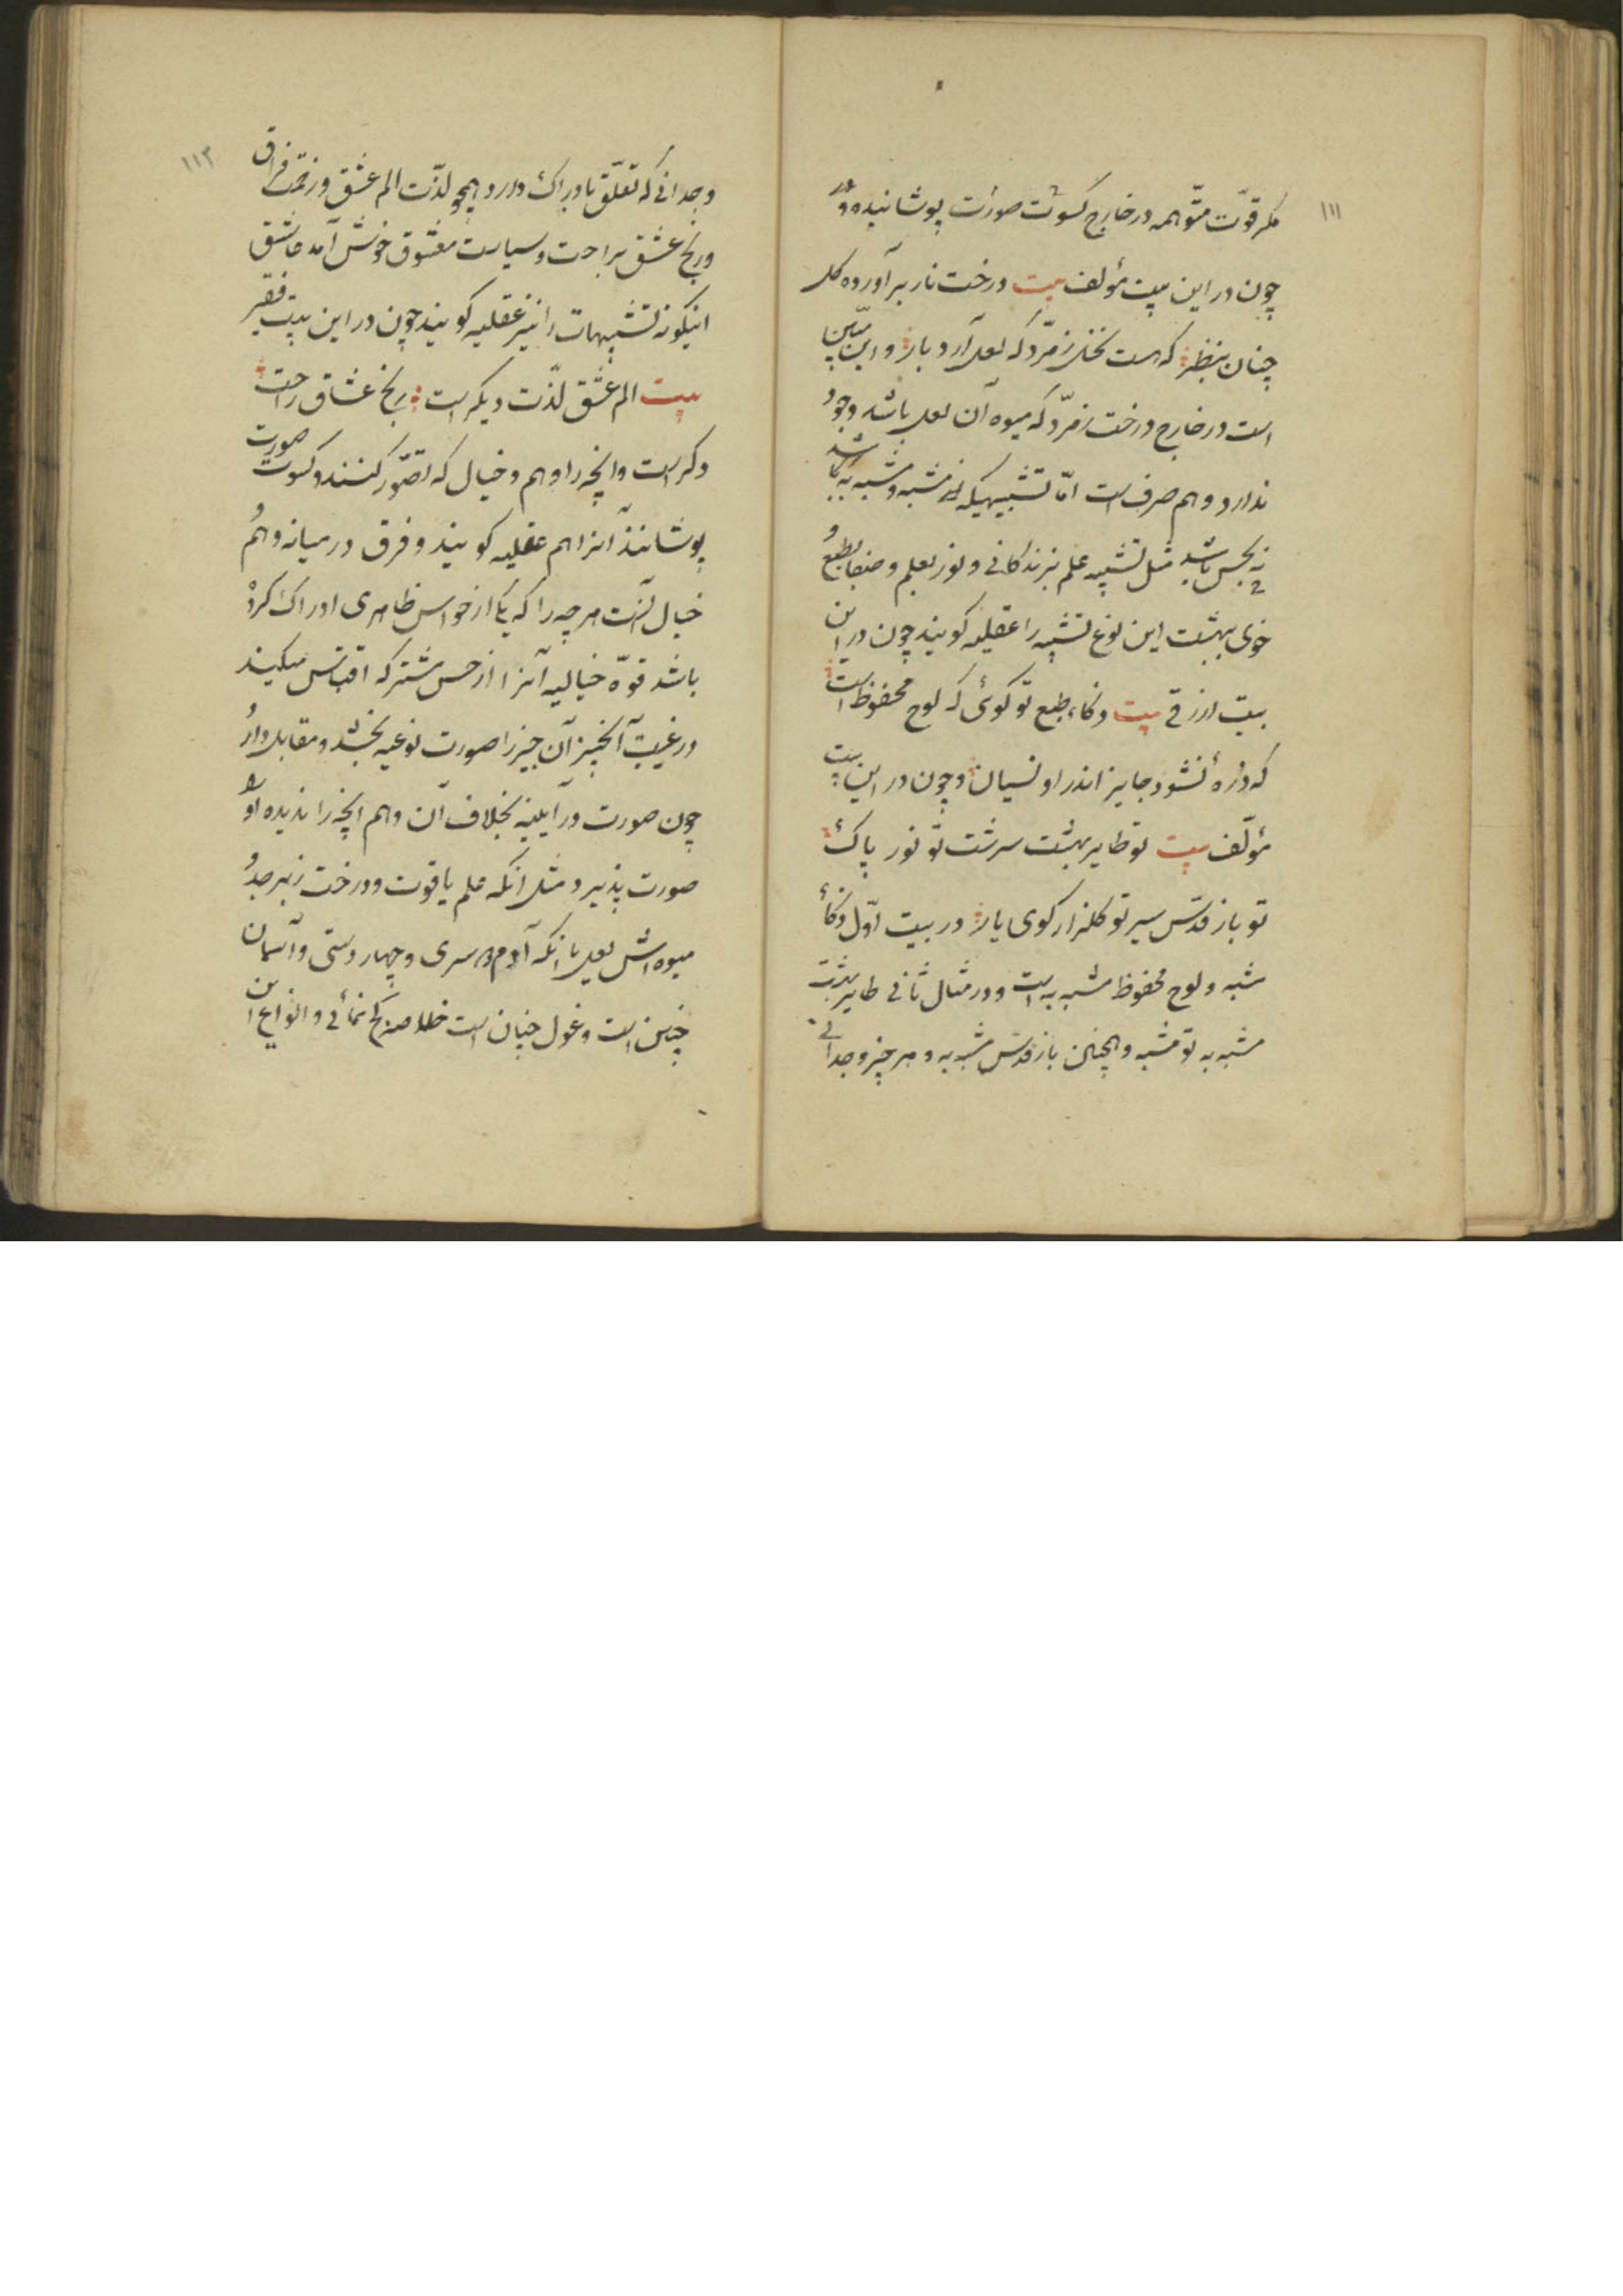 ۱۱۱
مکر قوّت متوّاهمه در خارج کسوت صورت پوشانیده بود
چون در این بیت مؤلف بیت درخت نار برآورده کل
چنان بنظر که هست نخل زمرّد که لعل آرد بار و این مبیّن
است در خارج درخت زمرّد که میوه آن لعل باشد وجود
ندارد وهم صرف است امّا تشبیهیکه نه مشبه و مشبه به
نه بحس باشد مثل تشبیه علم بزندکانی و نور بعلم و صفا بطبع و
خوی بهشت این نوع تشبیه را عقلیه کویند چون در این
بیت ازرقی بیت ذکاء طبع تو کوئی که لوح محفوظ است
که ذرهٔ نشود جایز اندر او نسیان و چون در این بیت
مؤلّف بیت تو طایر بهشت سرشت تو نور پاک
تو باز قدّس سیر تو کلزار کوی یار در بیت اوّل ذکاء
مشبه و لوح محفوظ مشبه به است و در مثال ثانی طایر بهشت
مشبه به تو مشبه و همچنان باز قدّس مشبه به و هر چیز وجدانی
۱۱۲
وجدانی که تعلّق بادراک دارد همچو لذّت الم عشق و زحمت فراق
و رنج عشق براحت و سیاست معشوق خوش آمد عاشق
اینکونه تشبیهات را نیز عقلیه کویند چون در این بیت فقیر
بیت الم عشق لذّت دیکر است رنج عشاق راحت
دکر است و آنچه را وهم و خیال که تصوّر کنند و کسوت صورت
پوشانند آنرا هم عقلیه کویند و فرق در میانه وهم و
خیال آنست هر چه را که یکی از حواس ظاهری ادراک کرده
باشد قوّه خیالیه آنرا از حس مشترکه اقتباس میکیند
در غیبت آنچیز آن چیز را صورت نوعیه بخشد و مقابل دارد
چون صورت در آیینه بخلاف آن وهم آنچه را ندیده او را
صورت پذیرد مثل آنکه علم یاقوت و درخت زبرجد و
میوه اش لعل یا آنکه آدم دو سری و چهار دستی و آسمان
چنین است و غول چنان است خلاصه و انواع این